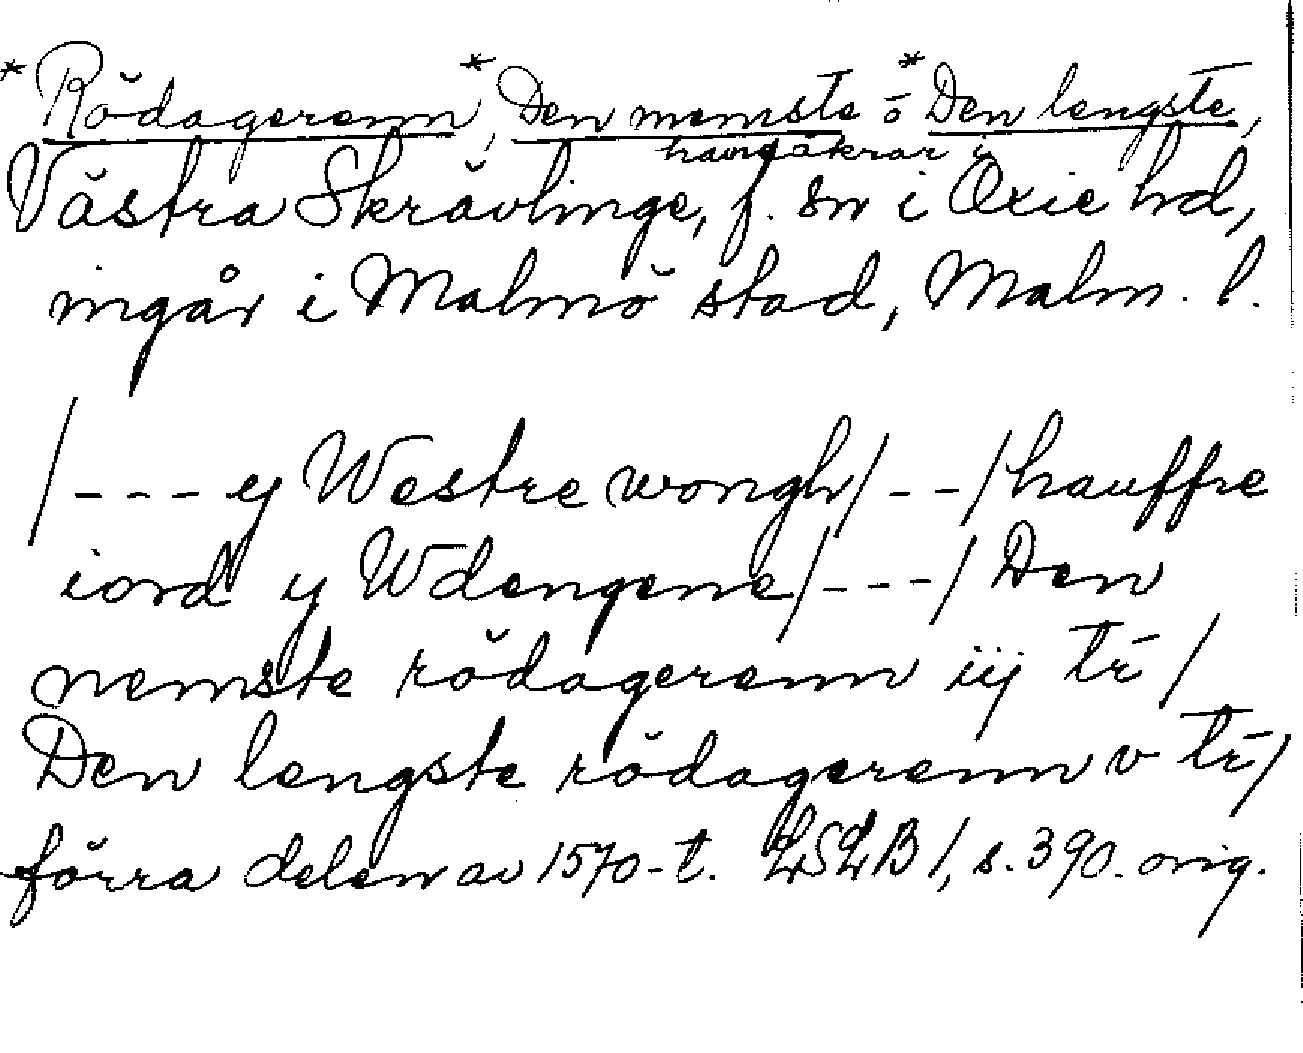 *Rödagerenn, *Den nemste o *Den lengste,
havgåkrar i
Västra Skrävlinge, f. sn i Oxie hd,
ingår i Malmö stad, Malm. l.
/--- y Westre wongh/--/hauffre
iord y Wdengene/---/ Den
nemste rödagerenn iij tr /
Den lengste rödagerenn v tr/
förra delen av 1570-t. LSLB 1, s. 390. orig.